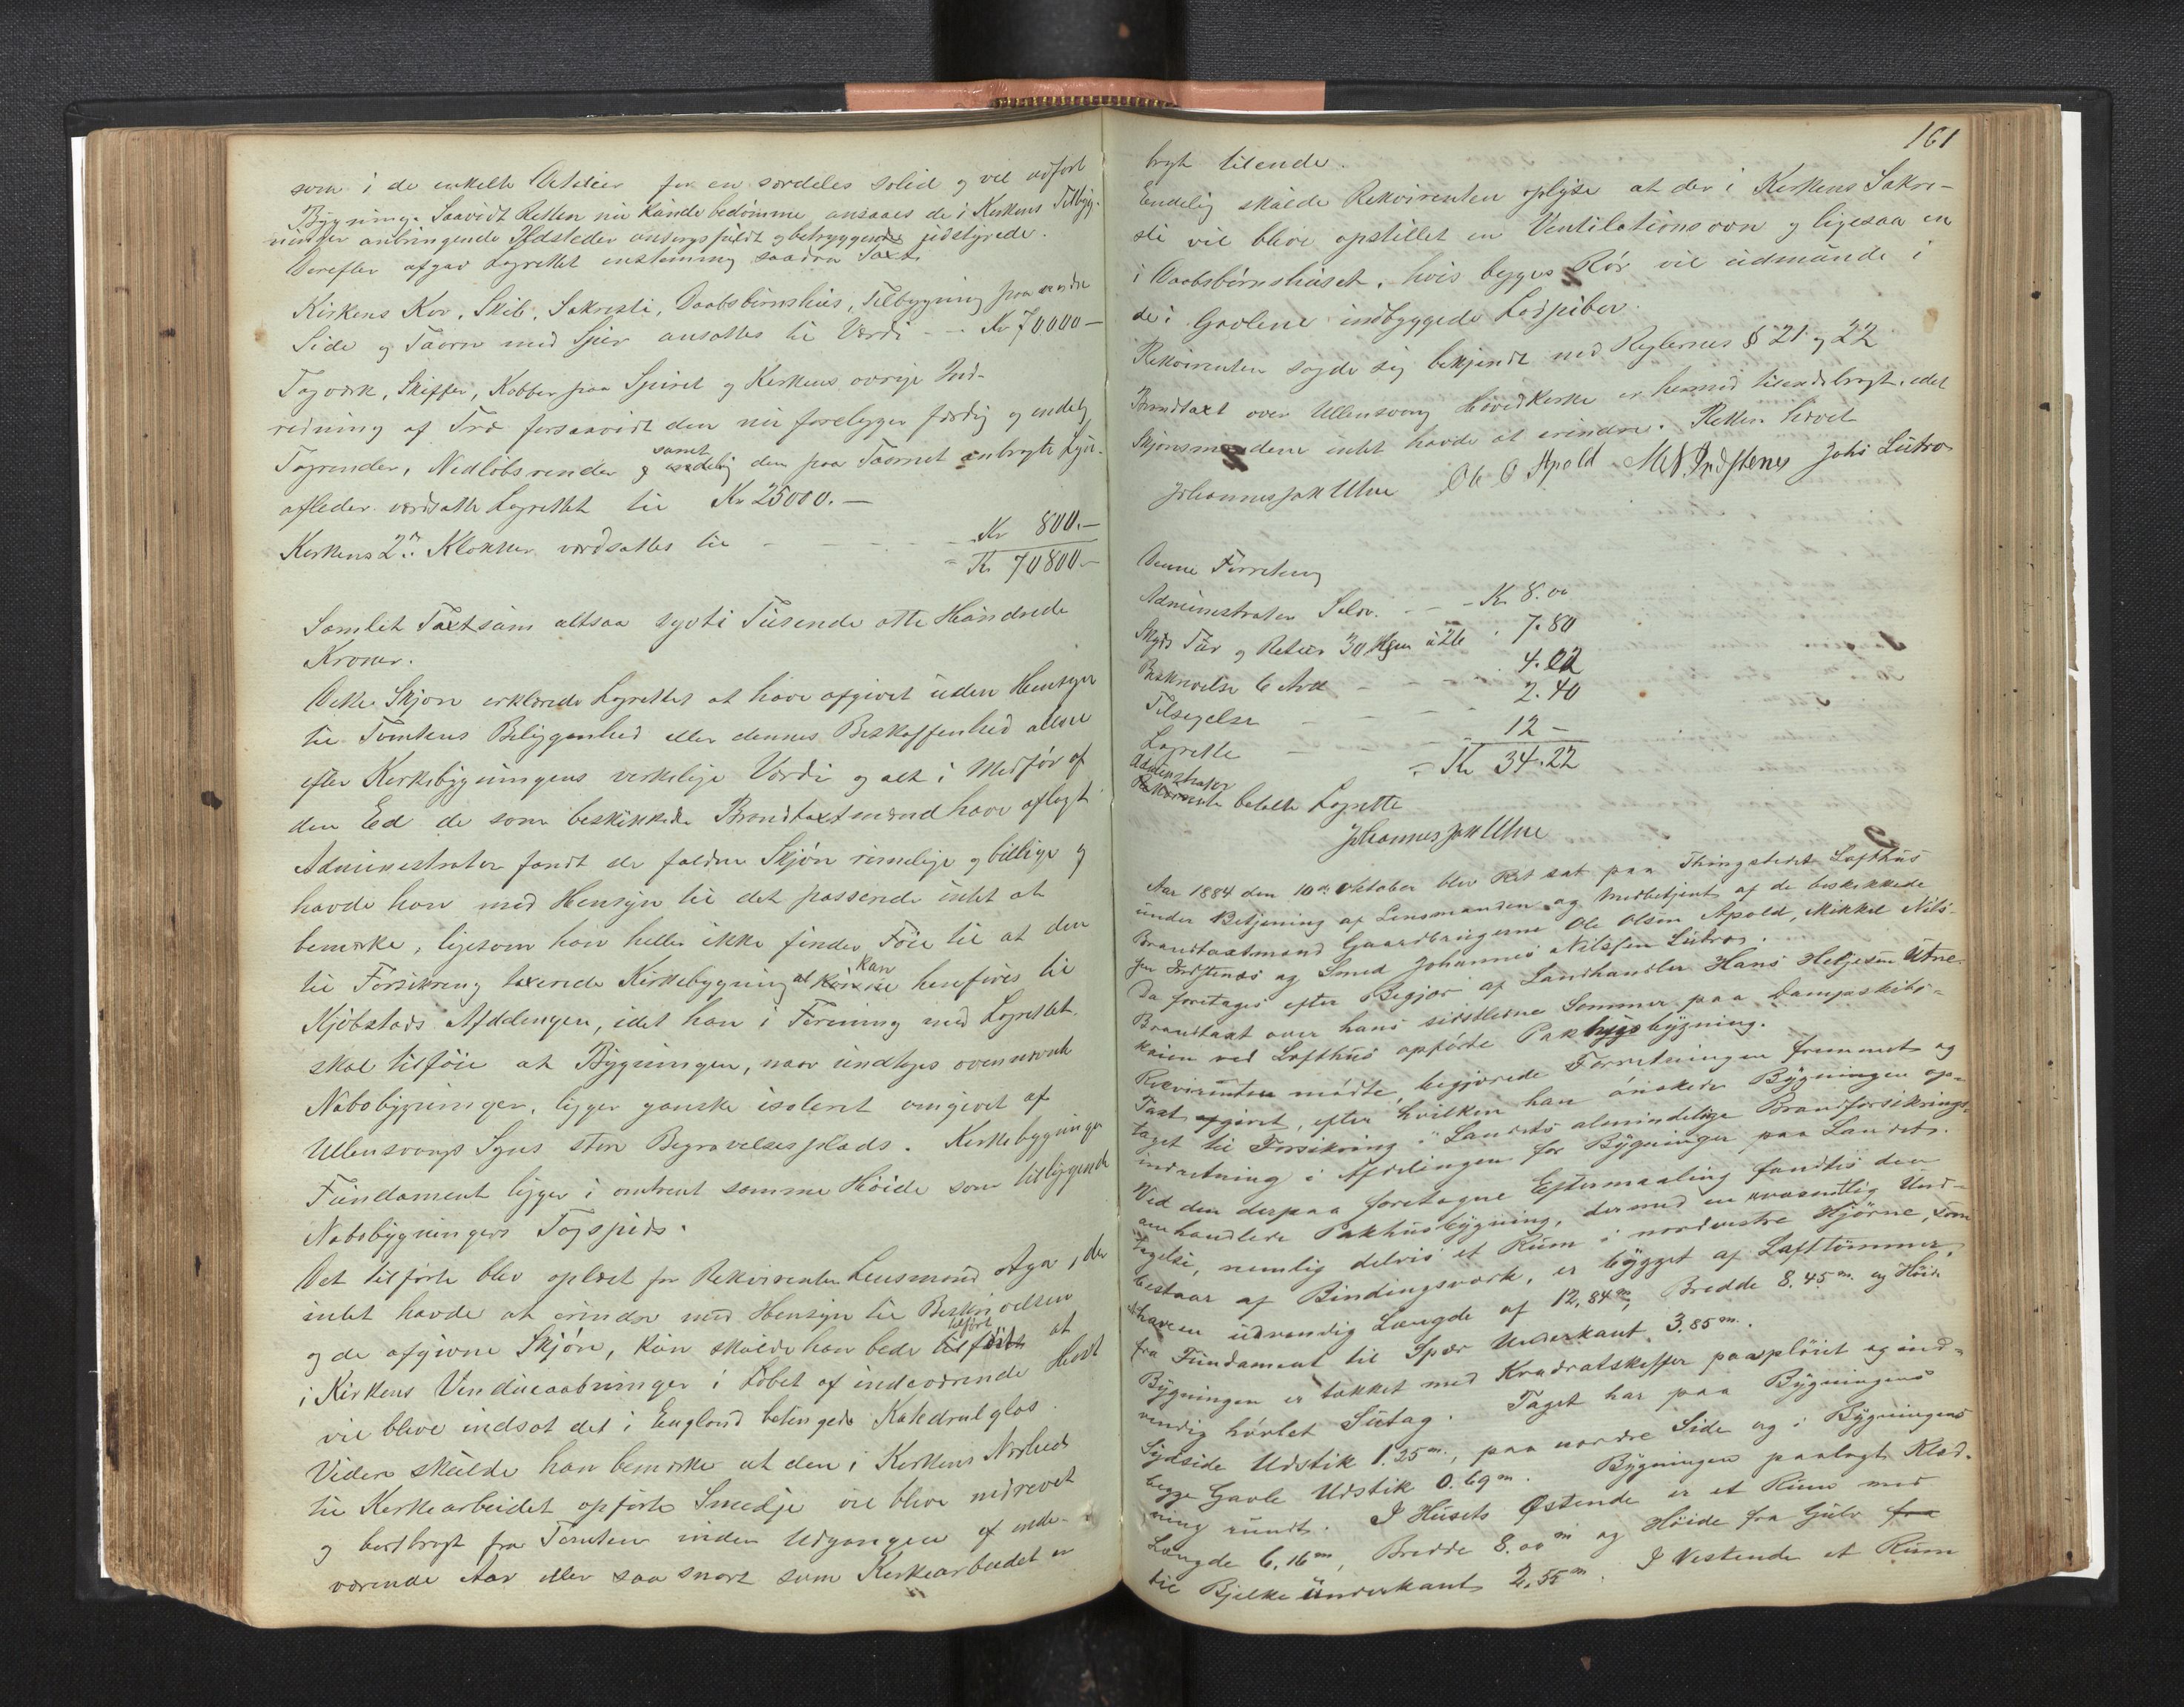 som i de enkelte Detailer for en særdeles solid og vel udført
Bygning. Saavidt Retten nu kunde bedømme ansaaes de i Kirkens Tilbyg-
ninger anbringende Ildsteder omsorgsfuldt og betryggende udstyrede.
Derefter afgav Lagrettet enstemmig saadan Taxt
Kirkens Kor, Skib, Sakristi, Daabsbørnshus, Tilbygning paa nordre
Side og Taarn med Spir ansattes til Værdi - - Kr 70000 -
Tagværk, Skiffer, Kobber paa Spiret og Kirkens øvrige Ind-
redning af Træ forsaavidt den nu foreligger færdig og endelig
Tagrender, Nedløbsrender samt og endelig den paa Taarnet anbragte Lyn-
afleder værdsatte Lagrettet til Kr 25000. -
Kirkens 2de Klokker værdsattes til - - - - Kr 800. -
= Kr 70800 -
Samlet Taxtsum altsaa sytti Tusende otte Hundrede
Kroner.
Dette Skjøn erklærede Lagrettet at have afgivet uden Hensyn
til Tomtens Beliggenhed eller dennes Beskaffenhed alene
efter Kirkebygningens virkelige Værdi og alt i Medfør af
den Ed de som beskikkede Brandtaxtmænd have aflagt
Administrator fandt de faldne Skjøn rimelige og billige og
havde han med Hensyn til det passerede intet at
bemærke, ligesom han heller ikke finder Føie til at den
til Forsikring taxerede Kirkebygning at kan henføres til
Kjøbstads Afdelingen, idet han i Forening med Lagrettet
skal tilføie at Bygningen, naar undtages ovennævnte
Nabobygninger, ligger ganske isoleret omgivet af
Ullensvangs Sogns store Begravelsesplads. Kirkebygningens
Fundament ligger i omtrent samme Høide som tilliggende
Nabobygningers Tagspids.
Det tilførte blev oplæst for Rekvirenten Lensmand Aga, der
intet havde at erindre med Hensyn til Beskrivelsen
og de afgivne Skjøn, kun skulde han bede tilført at
i Kirkens Vinduesaabninger i Løbet af indeværende Høst
vil blive indsat det i England betingede Katedralglas.
Videre skulde han bemærke at den i Kirkens Nærhed
til Kirkearbeidet opførte Smedje vil blive nedrevet
og bortbragt fra Tomten inden Udgangen af inde-
værende Aar eller saa snart som Kirkearbeidet er
161
bragt tilende.
Endelig skulde Rekvirenten oplyse at der i Kirkens Sakri-
sti vil blive opstillet en Ventilationsovn og ligesaa en
i Daabsbørnshuset, hvis begges Rør vil udmunde i
de i Gavlene indbyggede Lodpiber.
Rekvirenten sagde sig bekjendt med Reglernes § 21 og 22
Brandtaxt over Ullensvang Hovedkirke er hermed tilendebragt, idet
Skjønsmændene intet havde at erindre. Retten hævet
Johannes Jak Utne Ole O Apold M N Indstenes Johs Lutro
Denne Forretning
Administrator Selv. - - - Kr 8.00
Skyds Tur og Retur 30 Kgm à 26 7.80
Beskrivelse 6 Ark - - - 4.02
Tilsigelse - - - - 2.40
Lagrette - - - - 12 -
= Kr 34.22
Administrator
betalte Lagrette
Johannes Jak Utne
Aar 1884 den 10de Oktober blev Ret sat paa Thingstedet Lofthus
under Betjening af Lensmanden og medbetjent af de beskikkede
Brandtaxtmænd Gaardbrugerne Ole Olsen Apold, Mikkel Nils-
sen Indstenæs og Smed Johannes Nilssen Lutro.
Da foretages efter Begjær af Landhandler Hans Helgesen Utne
Brandtaxt over hans sidstledne Sommer paa Dampskibs-
kaien ved Lofthus opførte Pakhusbygning.
Rekvirenten mødte, begjærede Forretningen fremmet og
Taxt afgivet, efter hvilken han ønskede Bygningen op-
taget til Forsikring i Landets almindelige Brandforsikrings-
indretning i Afdelingen for Bygninger paa Landet.
Ved den derpaa foretagne Eftermaaling fandtes den
omhandlede Pakhusbygning, der med en uvæsentlig Und-
tagelse, nemlig delvis et Rum i nordvestre Hjørne, som
bestaar af Bindingsværk, er bygget af Lafttømmer,
at have en udvendig Længde af 12,84m, Bredde 8.45m og Høide
fra Fundament til Spær Underkant 3.85m.
Bygningen er tækket med Kvadratskiffer paa pløiet og ind-
vendig høvlet Sutag. Taget har paa Bygningens
Sydside Udstik 1.25m, paa nordre Side og i Bygningens
begge Gavle Udstik 0.69m. Bygningen paalagt Klæd-
ning rundt. I Husets Østende er et Rum med
Længde 6,16m, Bredde 8.00m og Høide fra Gulv fra
til Bjelke Underkant 2,55m. I Vestende et Rum